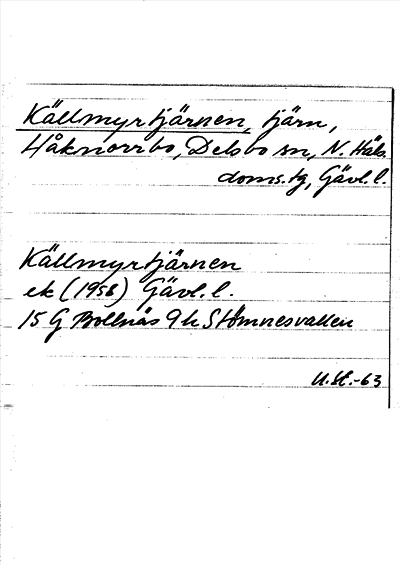 Källmyrtjärnen, tjärn,
Håknorrbo, Delsbo sn, N. Häls.
doms. tg, Gävl. l.
Källmyrtjärnen
ek (1958) Gävl. l.
15 G Bollnäs 9 h Stömnesvallen
U. St. -63